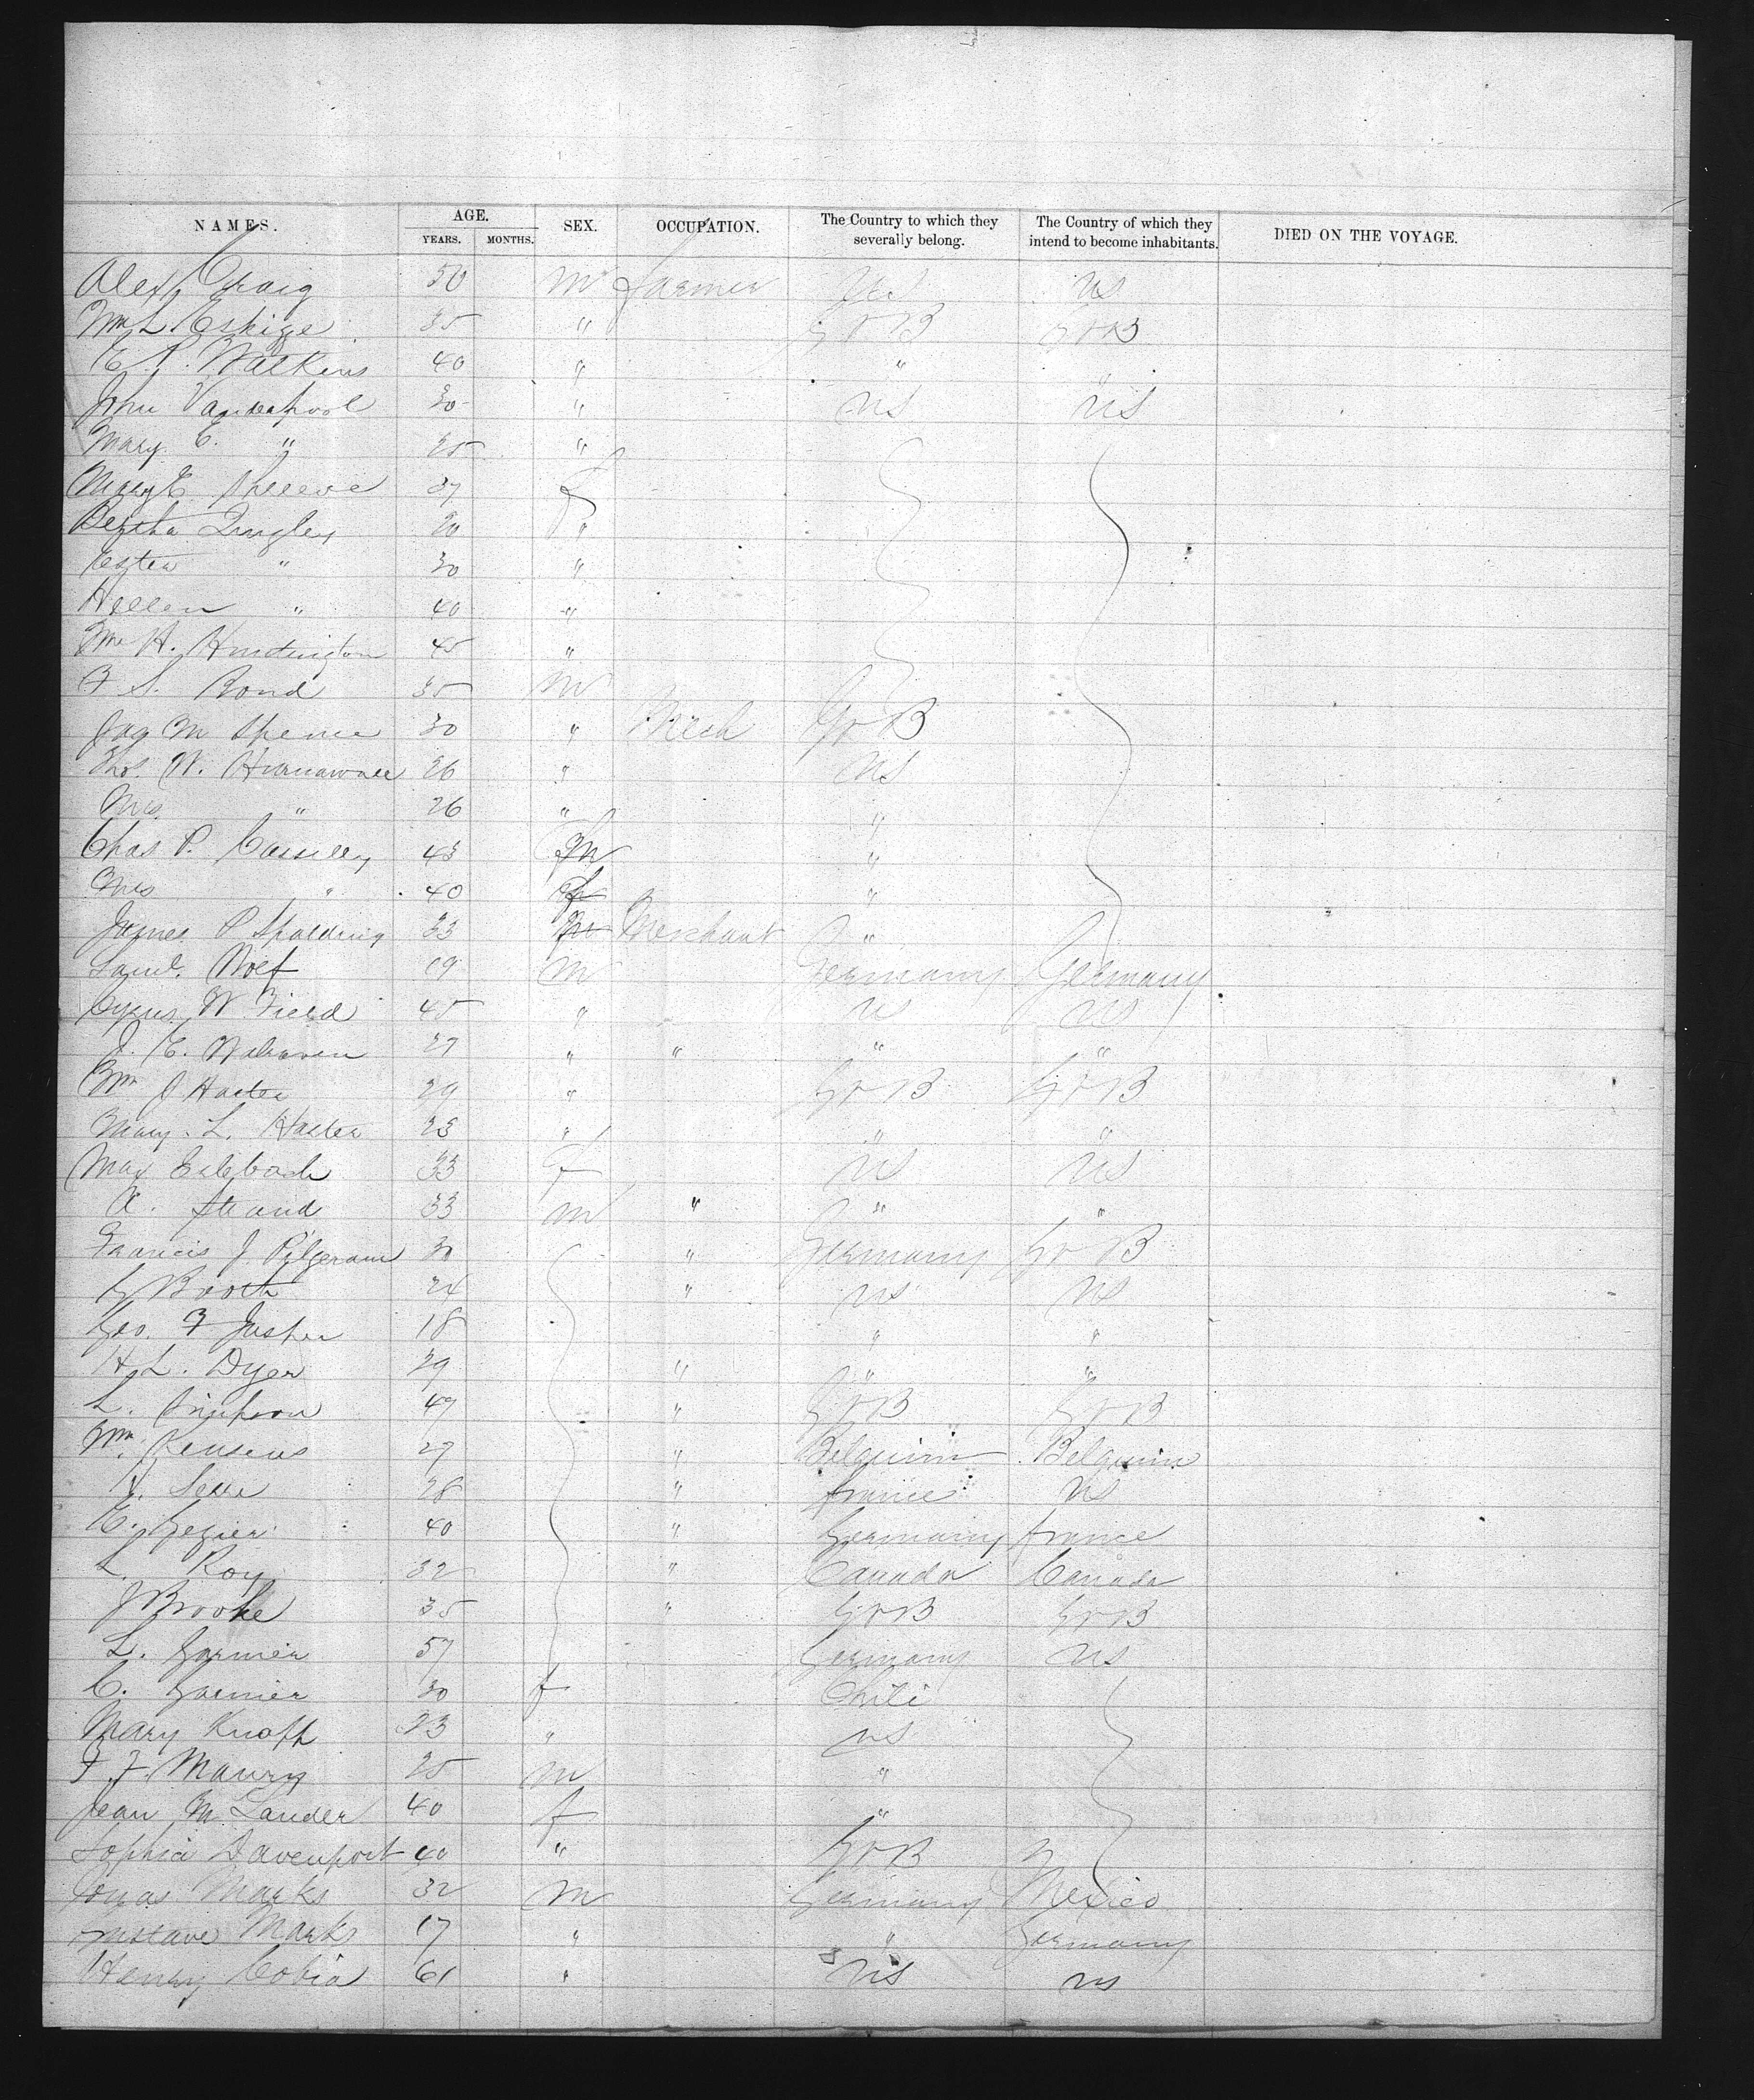 NAMES. AGE. SEX. OCCUPATION. The Country to which they severally belong. The Country of which they intend to become inhabitants. DIED ON THE VOYAGE.
YEARS. MONTHS.
Alex Craig 50 m Farmer US US
Wm L Eskigge 35 " Gr B Gr B
E. P. Watkins 40 " " "
John Vanderpool 30 " US US
Mary C. " 25 "
Mary E. Shreeve 37 f
Bertha Quigley 20 "
Ester " 30 "
Hellen " 40 "
H. Huntington 45 "
F S. Bond 35 m
Jas M Spence 30 " Mech Gr B
Thos. W. 26 " US
Mrs. " 26 " "
Chas P. Cassilly 43 m "
Mrs " 40 f "
James P Spalding 33 m Merchant "
Saml. Wolf 19 m Germany Germany
Cyrus W Field 45 " US US
J. E. 27 " " " "
Wm J Harter 29 " Gr B Gr B
Mary L. Harter 23 " " "
Max 33 f US US
A. Strand 33 m " " "
Francis J. Pilgeram 30 " Germany Gr B
G Booth 24 " US US
Geo. F Jusher 18 " "
H L. Dyer 29 " " "
L. Simpson 47 " Gr B Gr B
Wm. Rensens 27 " Belguim Belguim
H. 28 " France US
E. 40 " Germany France
L. Roy 32 " Canada Canada
J Brooke 35 " Gr B Gr B
L. Garnier 57 Germany US
C. Garnier 30 f Chili
Mary Knapp 23 " US
F. F. Maury 25 m "
Jean M. Lander 40 f "
Sophia Davenport 40 " Gr B
Jonas Marks 32 m Germany Mexico
Gustave Marks 17 " " Germany
Henry Cobia 61 " US US